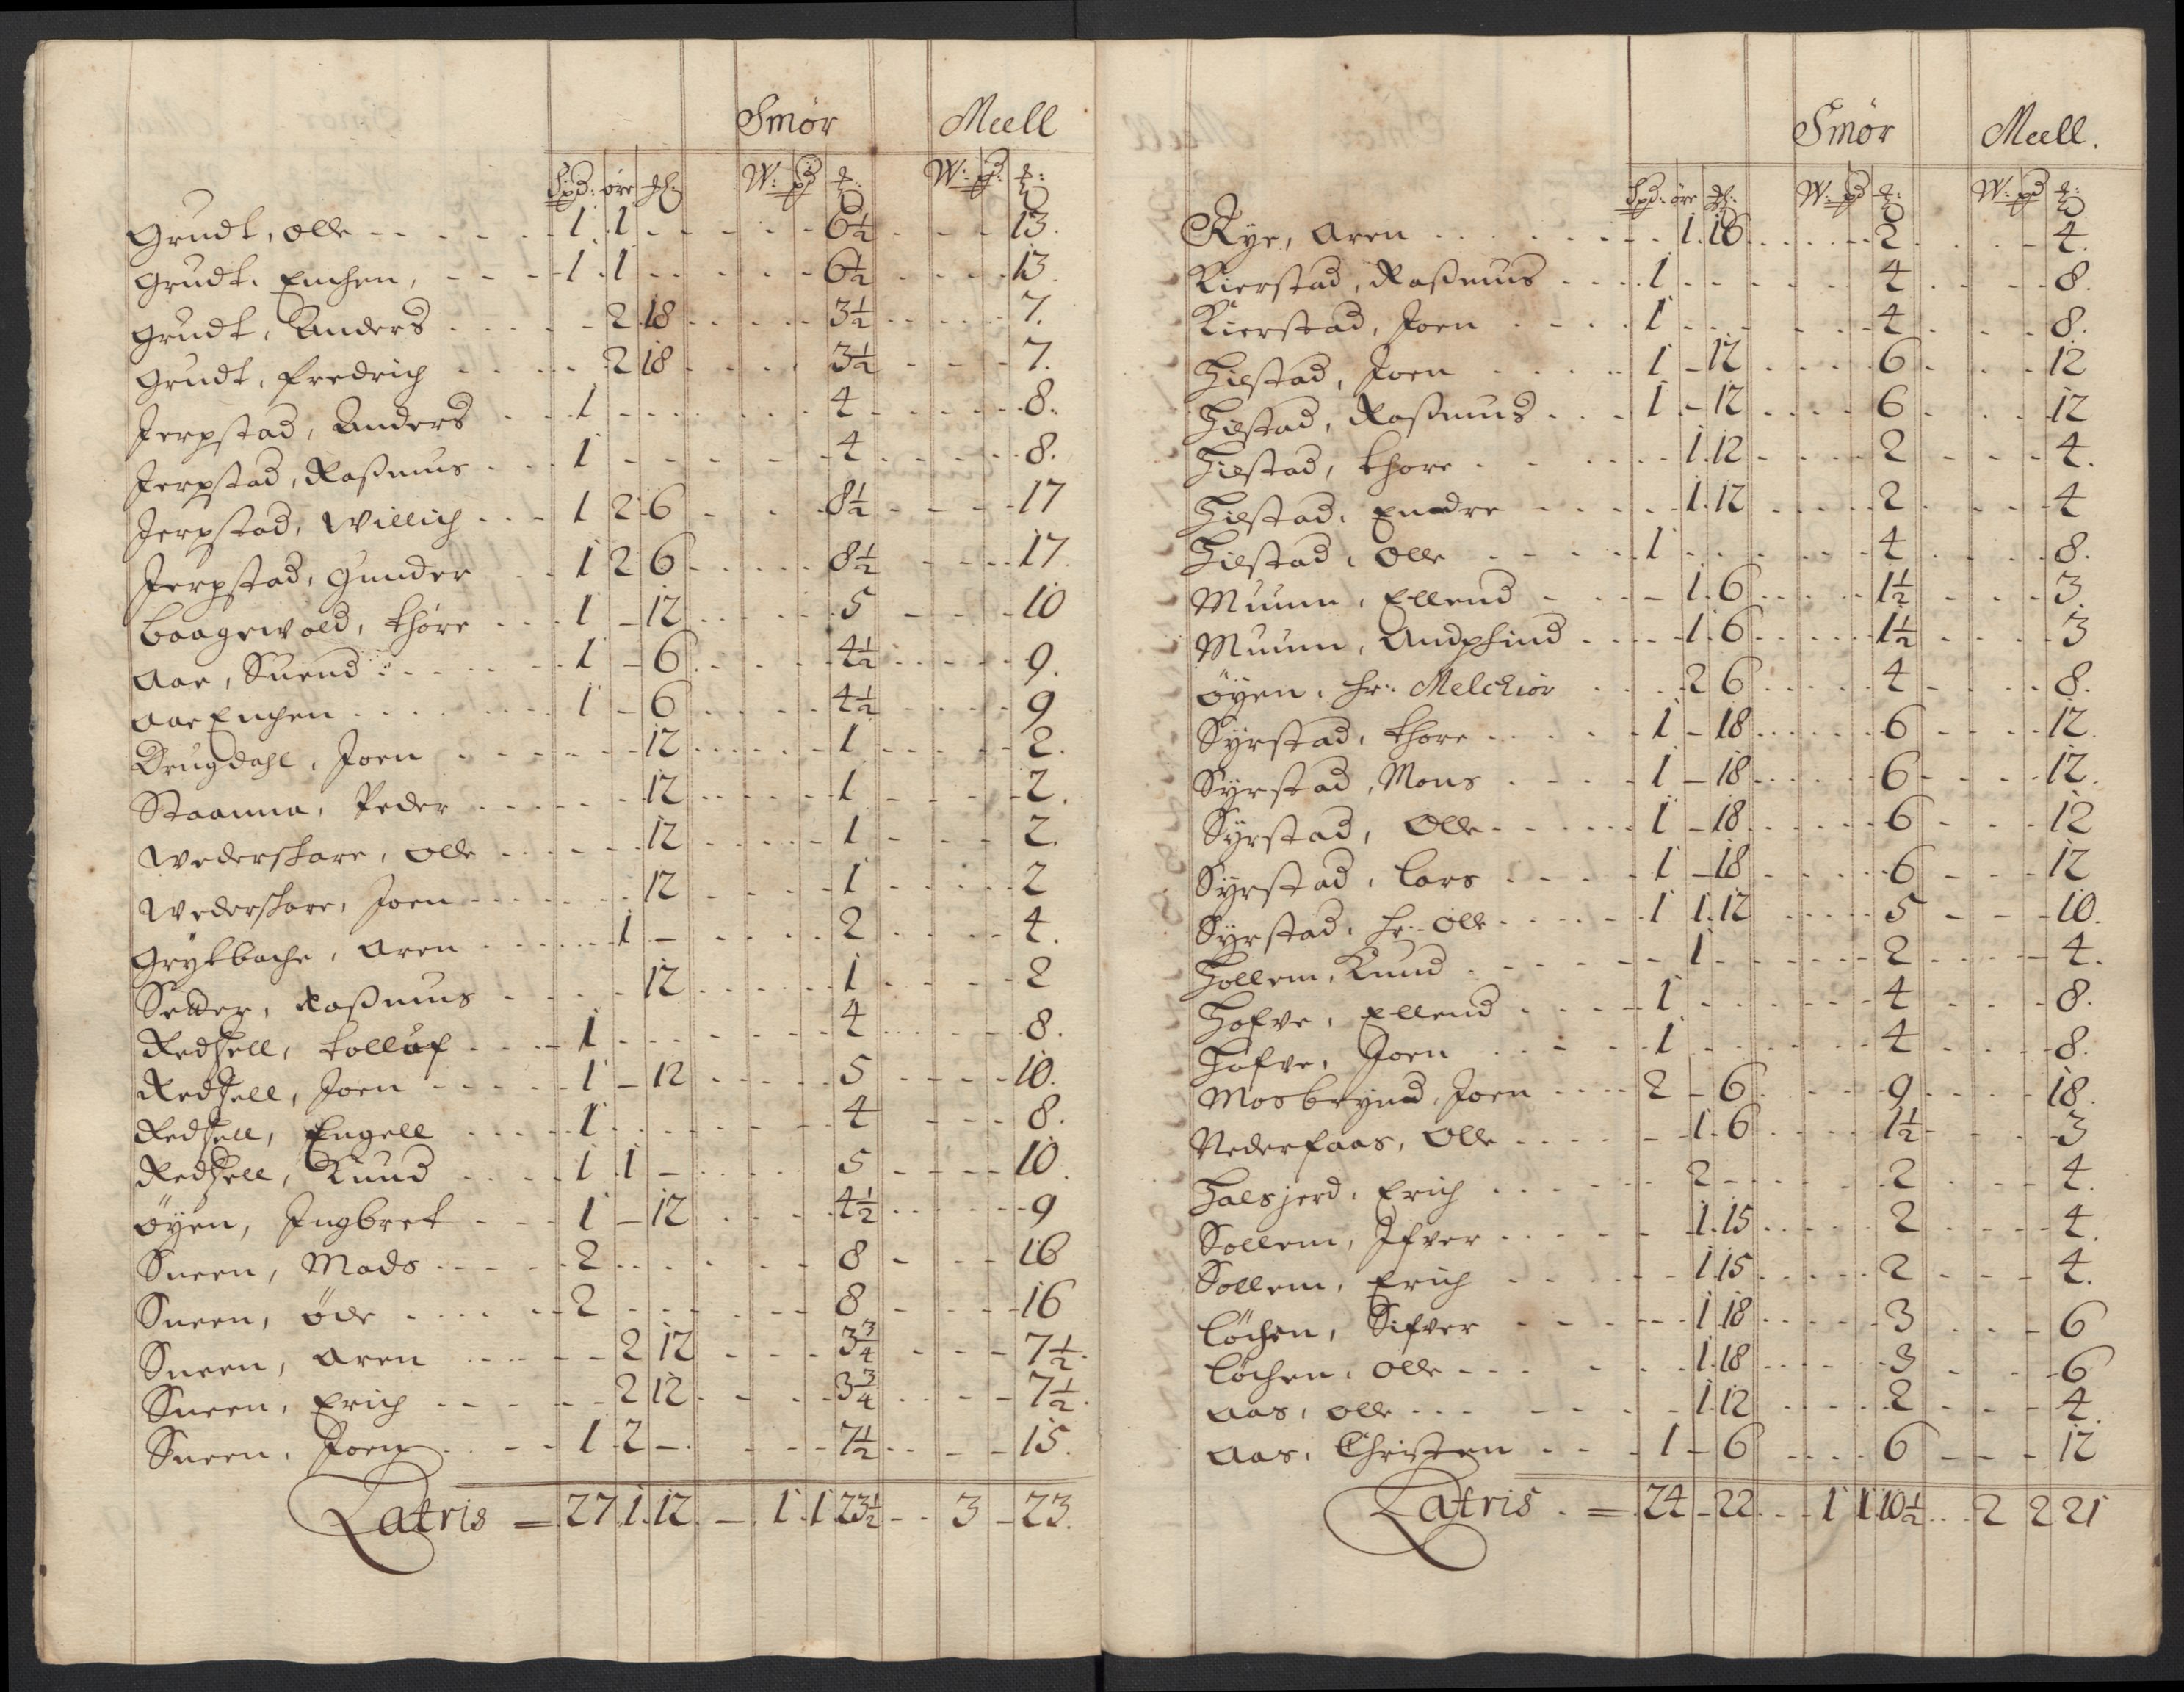 Smør Meell
Spd: øre
W: pd W: pd
Grudt, Olle 1 1 6½ 13.
Grudt, Enchen, 1 1 6½ 13
Grudt, Anders 2 18 3½ 7.
Grudt, Fredrich 2 18 3½ 7.
Jerpstad, Anders 1 4 8.
Jerpstad, Rasmus 1 4 8.
Jerpstad, Willich 1 2 6 8½ 17
Jerpstad, Gunder 1 2 6 8½ 17.
Baagewold, Thøre 1 - 12 5 10
Aae, Suend 1 - 6 4½ 9.
Aae Enchen 1 - 6 4½ 9
Drugdahl, Joen 12 1 2.
Staamna, Peder 12 1 2.
Wederskare, Olle 12 1 2.
Wederskare, Joen 12 1 2
Grytbache, Aren 1 - 2 4.
Setter, Rasmus 12 1 2
Redsell, Tolluf 1 4 8.
Redsell, Joen 1 - 12 5 10.
Redsell, Engell 1 4 8.
Redsell, Knud 1 1 - 5 10.
Øyen, Ingbret 1 - 12 4½ 9
Sneen, Mads 2 8 16
Sneen, Øde 2 8 16
Sneen, Aren 2 12 3¾ 7½
Sneen, Erich 2 12 3¾ 7½
Sneen, Joen 1 2 - 7½ 15.
Latris = 27 1 12 - 1 1 23½ 3 - 23.
Smør Meell.
Spd: øre
W: pd W: pd
Rye, Aren 1 16 2 4.
Kierstad, Rasmus 1 4 8.
Kierstad, Joen 1 4 8.
Hilstad, Joen 1 - 12 6 12
Hilstad, Rasmus 1 - 12 6 12
Hilstad, Thore 1 12 2 4.
Hilstad, Endre 1 12 2 4
Hilstad, Olle 1 4 8.
Muunn, Ellend 1 6 1½ 3
Muunn, Andphind 1 6 1½ 3
Øyen, Hr: Melchior 2 6 4 8.
Syrstad, Thore 1 - 18 6 12.
Syrstad, Mons 1 - 18 6 12.
Syrstad, Olle 1 - 18 6 12
Syrstad, Lars 1 - 18 6 12
Syrstad, Hr: Olle 1 1 12 5 10.
Hollem, Knud 1 2 4.
Hofve, Ellend 1 4 8.
Hofve, Joen 1 4 8.
Mosbrynd, Joen 2 - 6 9 18.
Nederfaas, Olle 1 6 1½ 3
Halsjerd, Erich 2 - 2 4.
Sollem, Ifver 1 15 2 4.
Sollem, Erich 1 15 2 4.
Løchen, Sifver 1 18 3 6
Løchen, Olle 1 18 3 6
Aas, Olle 1 12 2 4.
Aas, Christen 1 - 6 6 12
Latris = 24 - 22 1 1 10½ 2 2 21